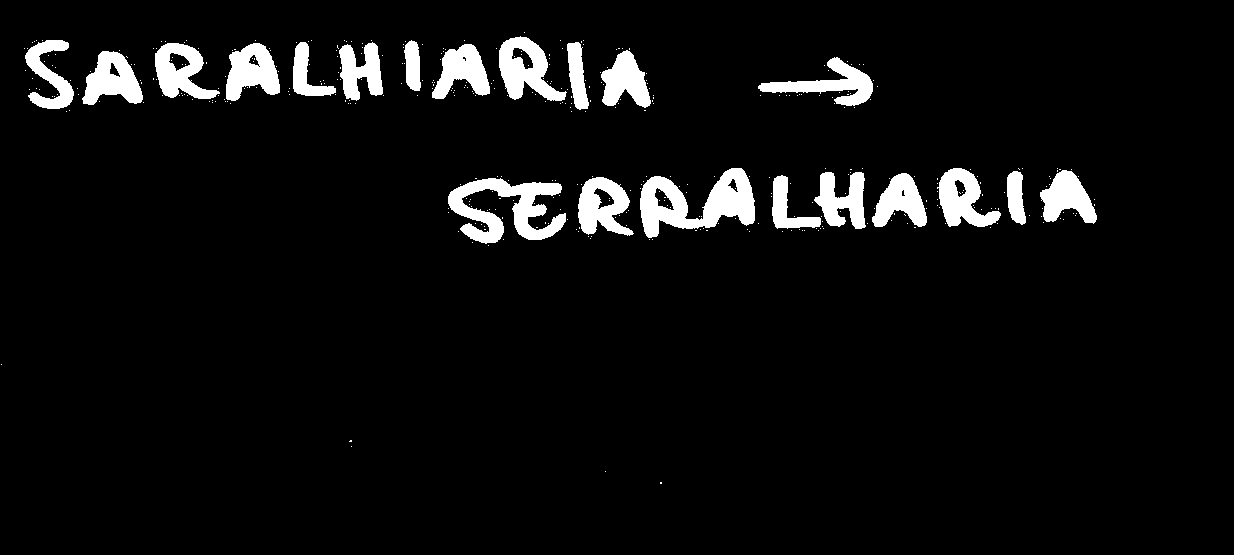 SARALHIARIA →
SERRALHARIA